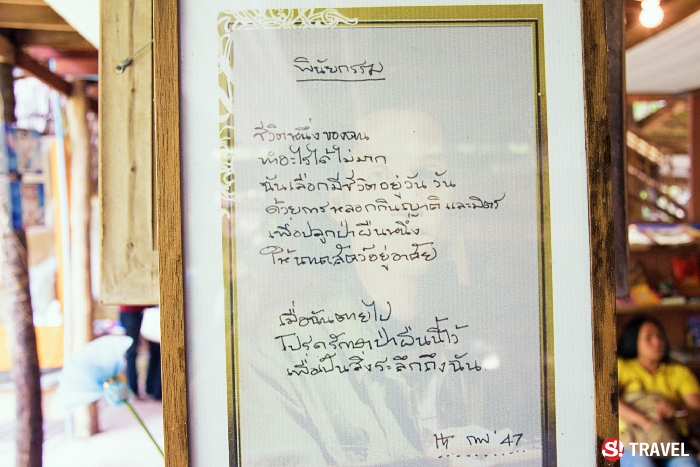 พินัยกรรม
ชีวิตหนึ่งของฉัน
ทำอะไรได้ไม่มาก
ฉันเลือกมีชีวิตอยู่วัน วัน
ด้วยการหลอกกินญาติ และมิตร
เพื่อปลูกป่าผืนหนึ่ง
ให้นานาสัตว์อยู่อาศัย
เมื่อฉันตายไป
โปรดรักษาป่าผืนนี้ไว้
เพื่อเป็นสิ่งระลึกถึงฉัน
กพ' 47
S! TRAVEL